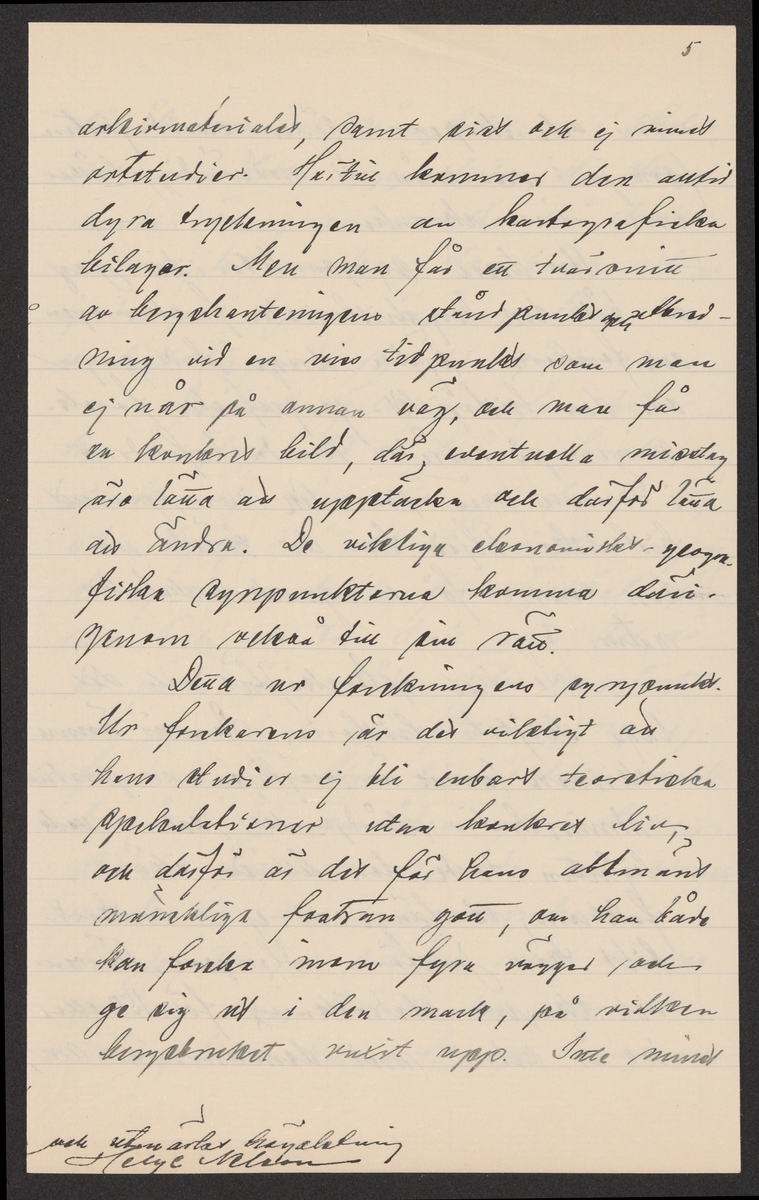 5
arkivmaterialet, samt sist och ej minst
ortstudier. Härtill kommer den alltid
dyra tryckningen av kartografiska
bilagor. Men man får ett tvärsnitt
av bergshanteringens ståndpunkt och utbred-
ning vid en viss tidpunkt som man
ej når på annan väg, och man får
en konkret bild, där eventuella misstag
äro lätta att upptäcka och därför lätta
att ändra. De viktiga ekonomiskt-geogra-
fiska synpunkterna komma däri-
genom också till sin rätt.
Detta ur forskningens synpunkt.
Ur forskarens är det viktigt att
hans studier ej bli enbart teoretiska
spekulationer utan konkret liv,
och därför är det för hans allmänt
mänskliga fostran gott, om han både
kan forska inom fyra väggar och
ge sig ut i den mark, på vilken
bergsbruket vuxit upp. Inte minst
och utmärkt högaktning
Helge Nelson